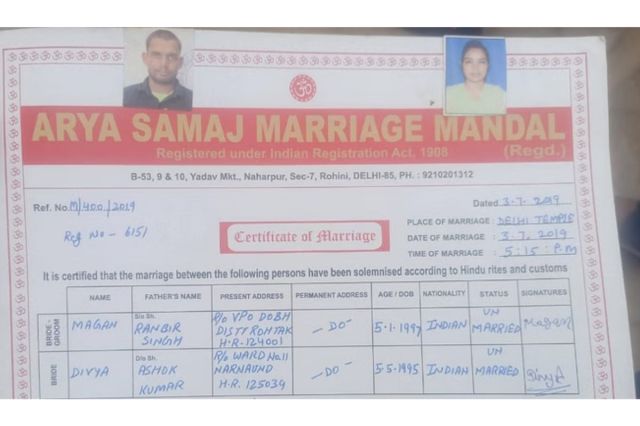 ARYA SAMAJ MARRIAGE MANDAL
Registered under Indian Registration Act. 1908 (Regd.)
B-53, 9 & 10, Yadav Mkt., Naharpur, Sec-7, Rohini, DELHI-85, PH. : 9210201312
Ref. No. M/400/2019
Dated 3-7. 2019
Ref No - 6151
PLACE OF MARRIAGE : DELHI TEMPLE
Certificate of Marriage
DATE OF MARRIAGE : 3-7. 2019
TIME OF MARRIAGE : 5:15: P.M
It is certified that the marriage between the following persons have been solemnised according to Hindu rites and customs
NAME FATHER'S NAME PRESENT ADDRESS PERMANENT ADDRESS AGE / DOB NATIONALITY STATUS SIGNATURES
BRIDE-GROOM MAGAN S/o Sh. RANBIR SINGH R/o VPO DOBH DISTT ROHTAK H.R-124001 -DO- 5-1-1997 INDIAN UN MARRIED Magan
BRIDE DIVYA D/o Sh. ASHOK KUMAR R/o WARD No.11 NARNAUND H.R. 125039 -DO- 5-5-1995 INDIAN UN MARRIED Divya